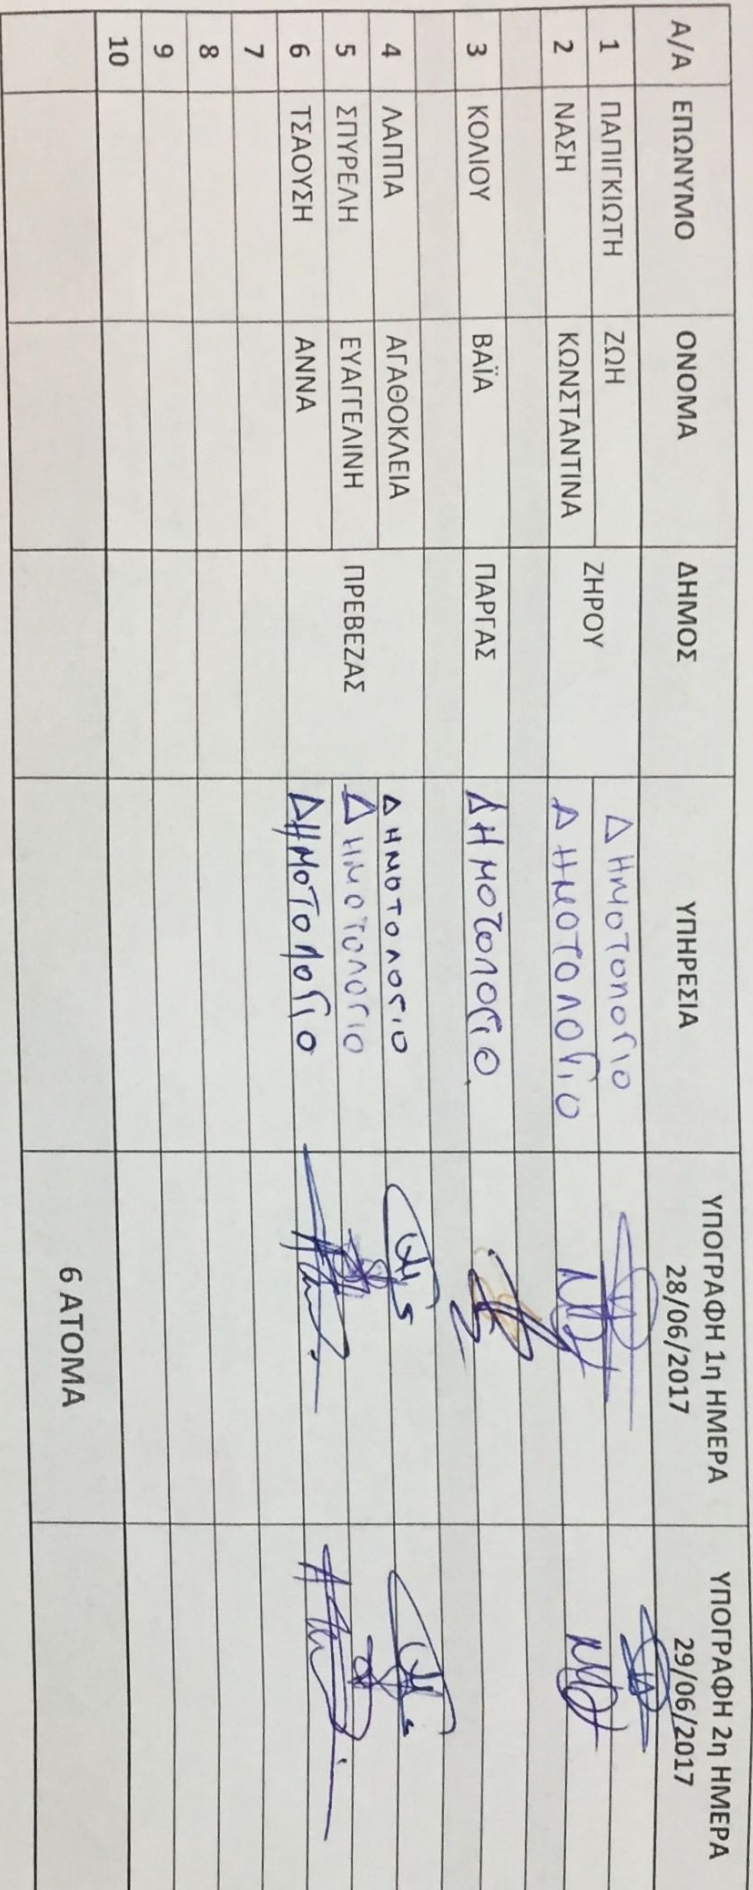 Α/Α ΕΠΩΝΥΜΟ ΟΝΟΜΑ ΔΗΜΟΣ ΥΠΗΡΕΣΙΑ ΥΠΟΓΡΑΦΗ 1η ΗΜΕΡΑ 28/06/2017 ΥΠΟΓΡΑΦΗ 2η ΗΜΕΡΑ 29/06/2017
1 ΠΑΠΙΓΚΙΩΤΗ ΖΩΗ ΖΗΡΟΥ Δημοτολογιο
2 ΝΑΣΗ ΚΩΝΣΤΑΝΤΙΝΑ ΔΗΜΟΤΟΛΟΓΙΟ
3 ΚΟΛΙΟΥ ΒΑΪΑ ΠΑΡΓΑΣ ΔΗμοτολογιο
4 ΛΑΠΠΑ ΑΓΑΘΟΚΛΕΙΑ ΠΡΕΒΕΖΑΣ ΔΗΜΟΤΟΛΟΓΙΟ
5 ΣΠΥΡΕΛΗ ΕΥΑΓΓΕΛΙΝΗ ΔΗΜΟΤΟΛΟΓΙΟ
6 ΤΣΑΟΥΣΗ ΑΝΝΑ ΔΗΜΟΤΟΛΟΓΙΟ
7
8
9
10
6 ΑΤΟΜΑ